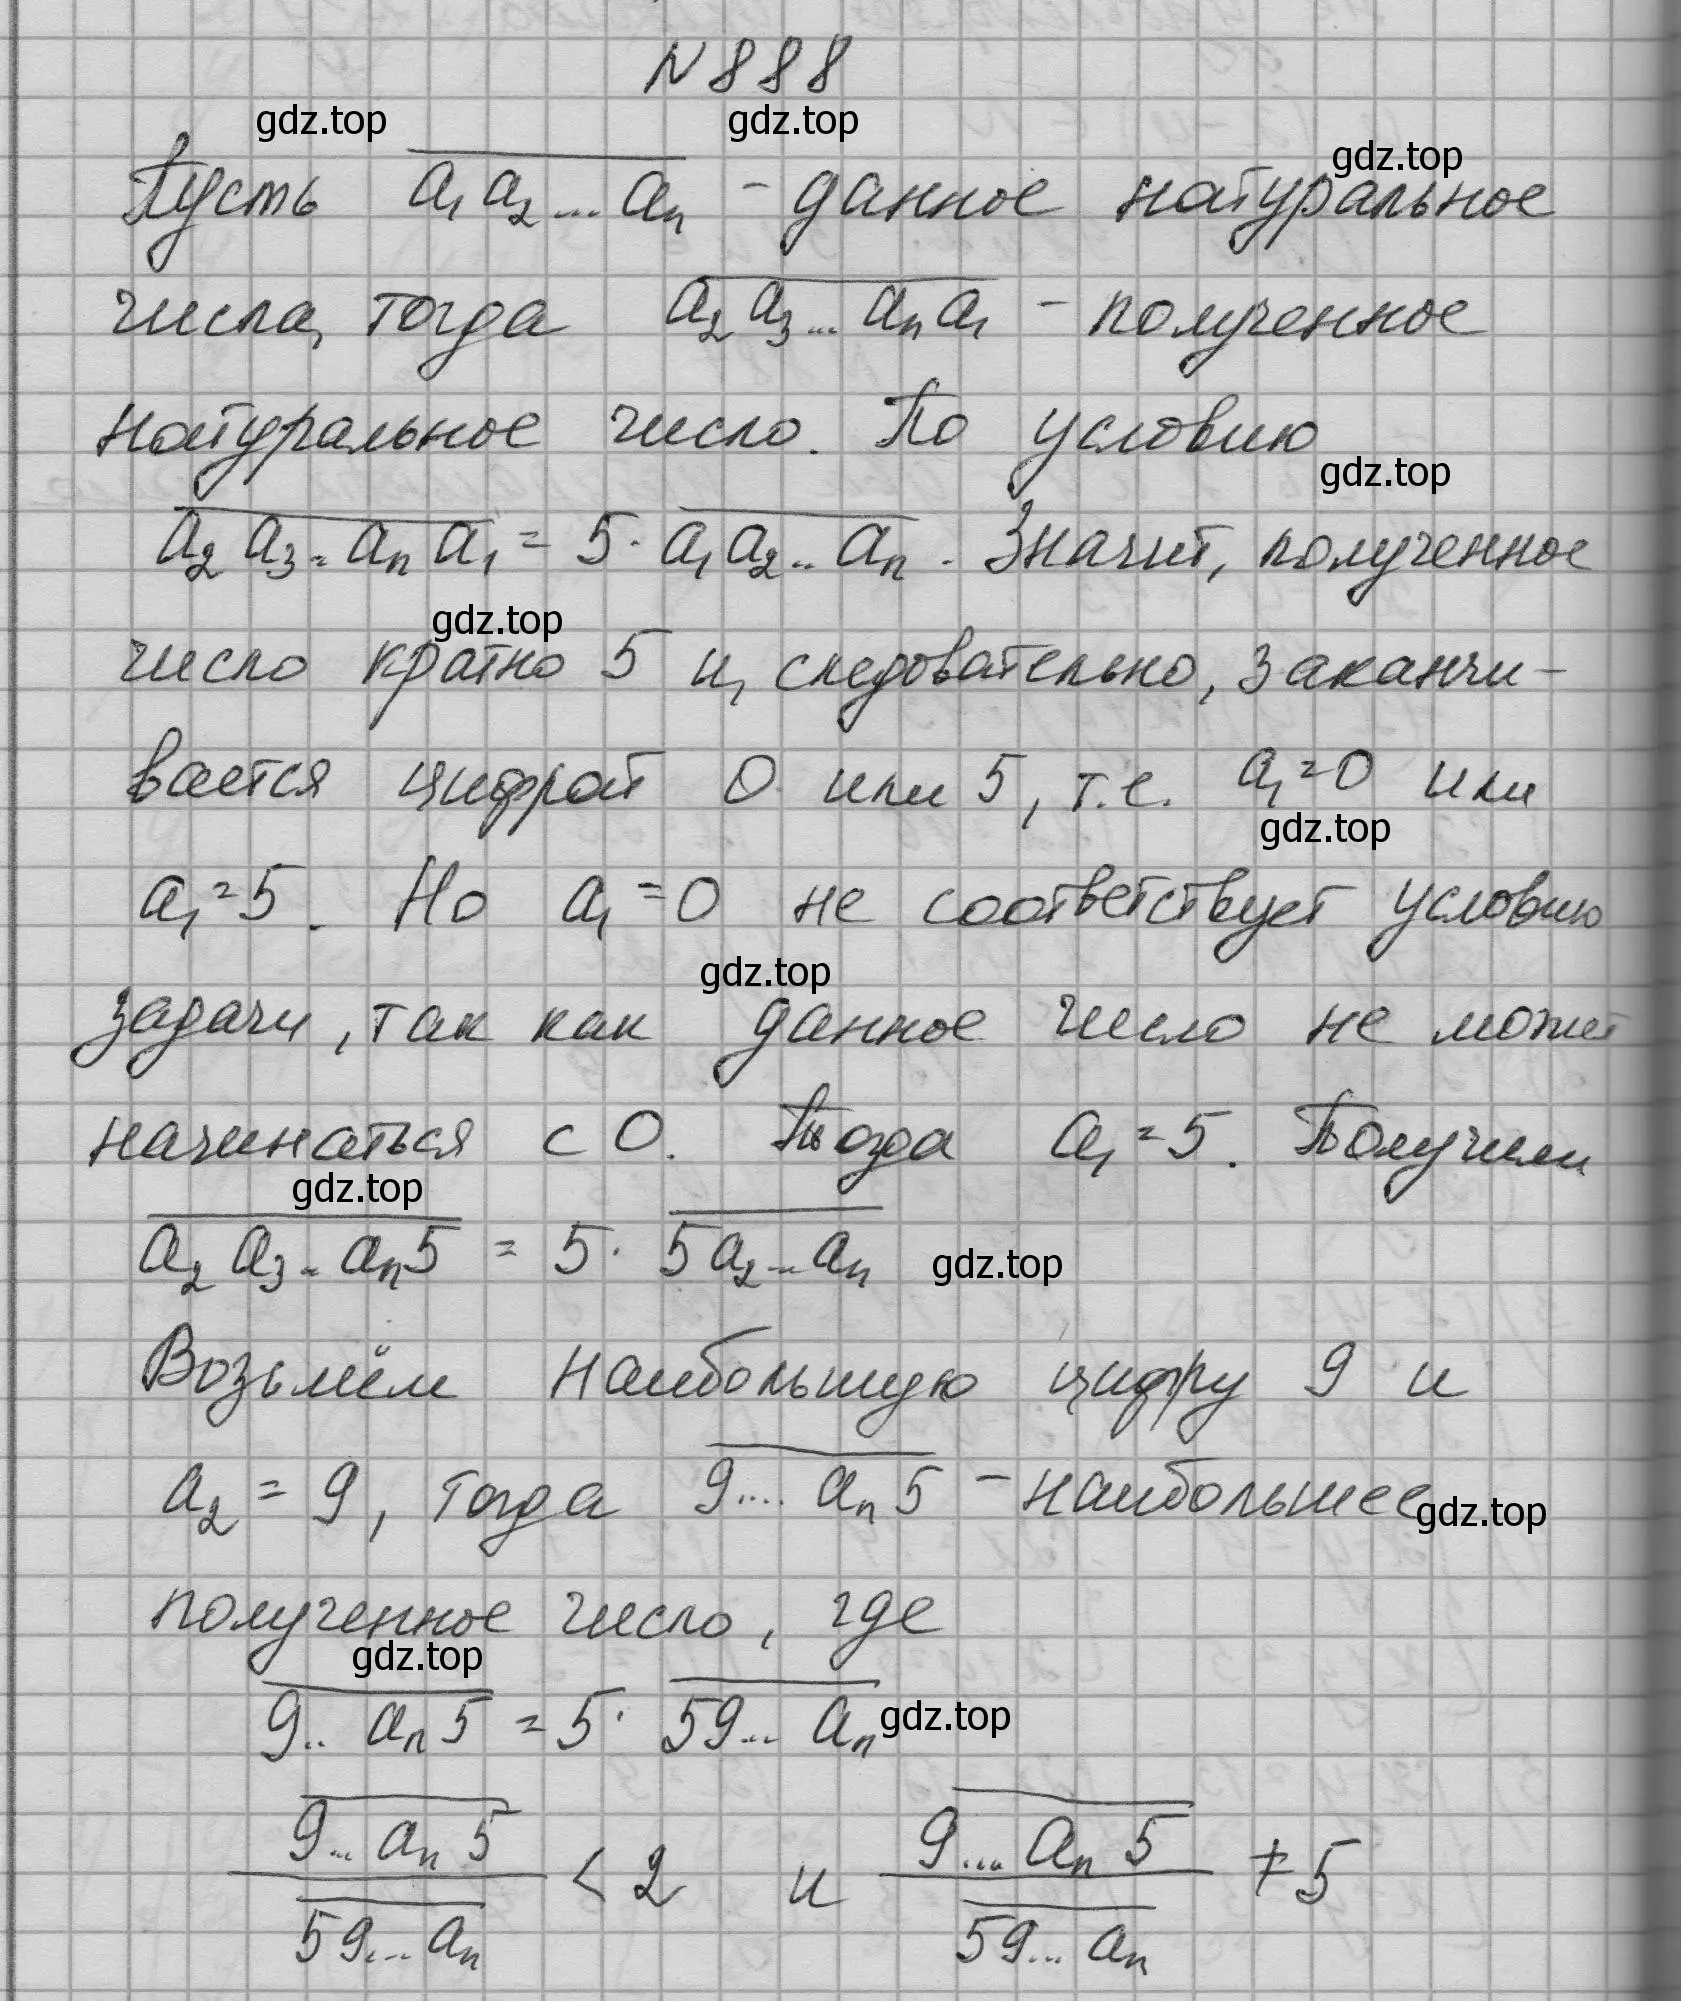 N 888
gdz.top gdz.top gdz.top
Пусть a₁a₂...aₙ - данное натуральное
числа, тогда a₂a₃...aₙa₁ - полученное
натуральное число. По условию
gdz.top
a₂a₃..aₙa₁ = 5·a₁a₂..aₙ. Значит, полученное
gdz.top
число кратно 5 и, следовательно, заканчи-
вается цифрой 0 или 5, т.е. a₁=0 или
gdz.top
a₁=5. Но a₁=0 не соответствует условию
gdz.top
задачи, так как данное число не может
начинаться с 0. Тогда a₁=5. Получим
gdz.top
a₂a₃..aₙ5 = 5· 5a₂..aₙ gdz.top
Возьмём наибольшую цифру 9 и
a₂ = 9, тогда 9....aₙ5 - наибольшее
gdz.top
полученное число, где
gdz.top
9..aₙ5 = 5· 59...aₙ gdz.top
9...aₙ5 / 59...aₙ < 2 и 9....aₙ5 / 59...aₙ ≠ 5